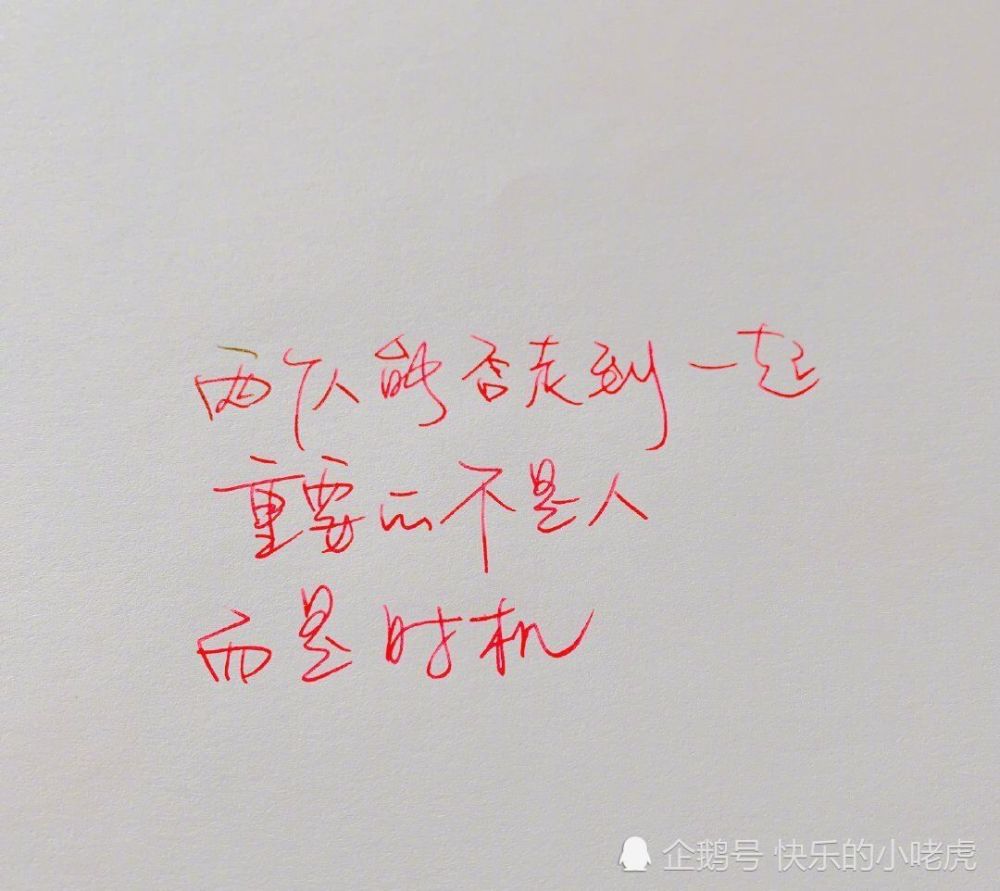 两个人能否走到一起
重要的不是人
而是时机
企鹅号 快乐的小咾虎